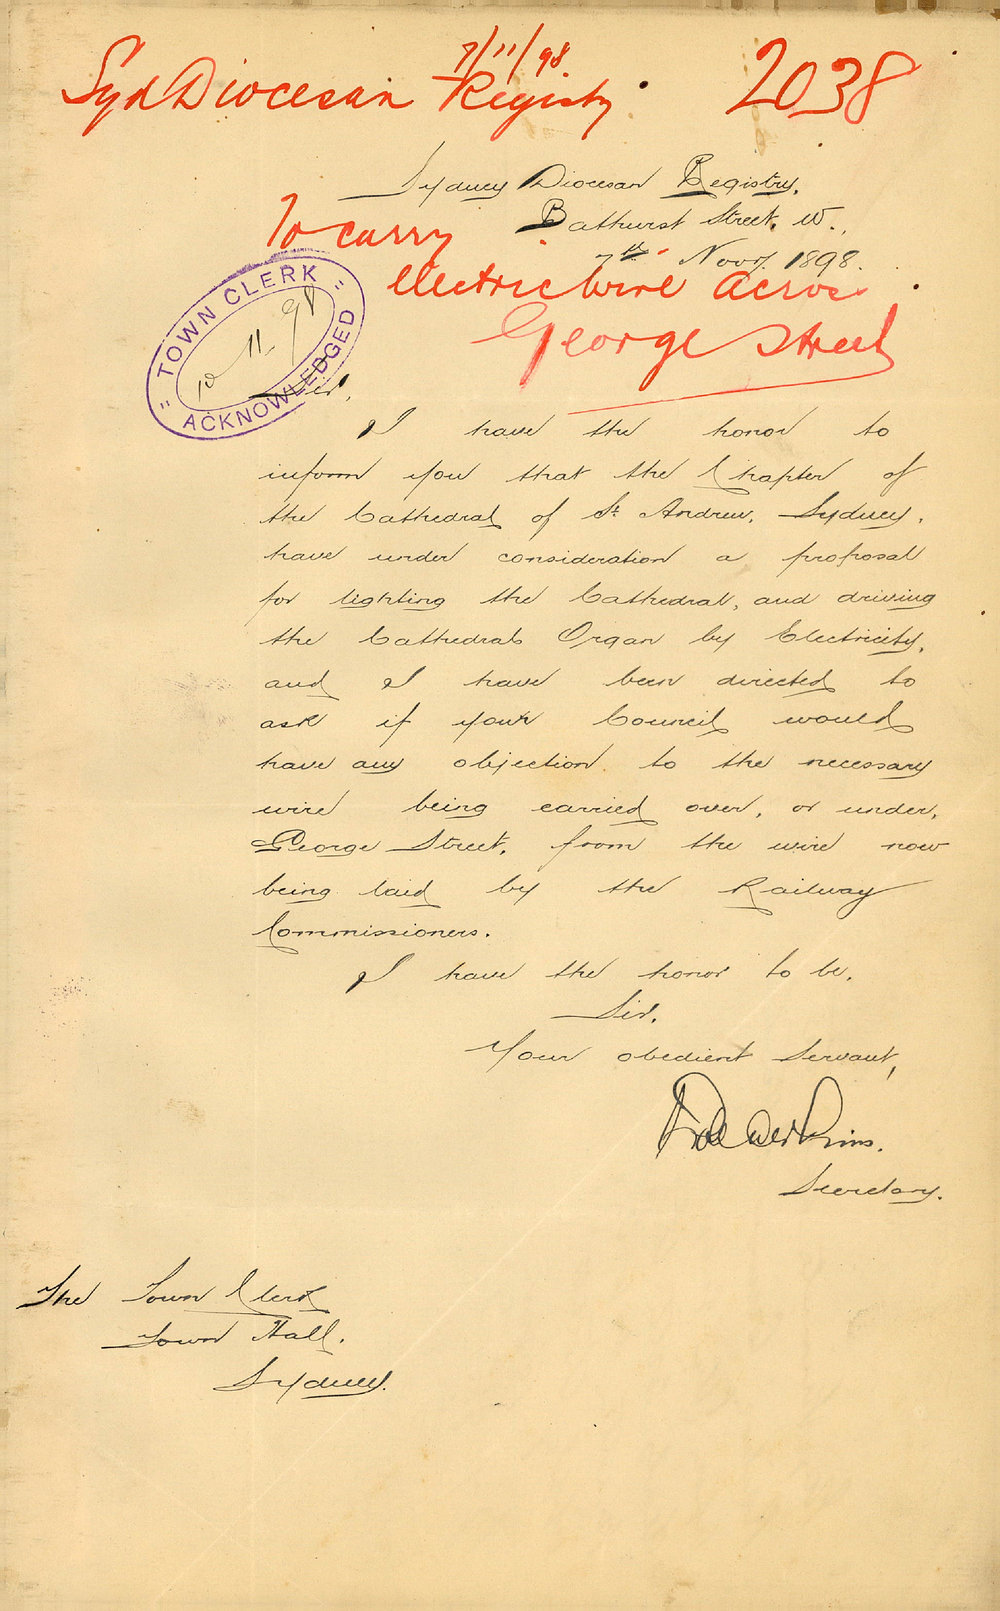 7/11/98.
Syd Diocesan Registry. 2038
Sydney Diocesan Registry,
Bathurst Street, W.,
7th Novr. 1898.
To carry
electric wire across
George Street
"TOWN CLERK"
10 11 98
ACKNOWLEDGED
Sir,
I have the honor to
inform you that the Chapter of
the Cathedral of St. Andrew, Sydney,
have under consideration a proposal
for lighting the Cathedral, and driving
the Cathedral Organ by Electricity,
and I have been directed to
ask if your Council would
have any objection to the necessary
wire being carried over, or under,
George Street, from the wire now
being laid by the Railway
Commissioners.
I have the honor to be,
Sir,
Your obedient Servant,
Secretary.
The Town Clerk
Town Hall.
Sydney.